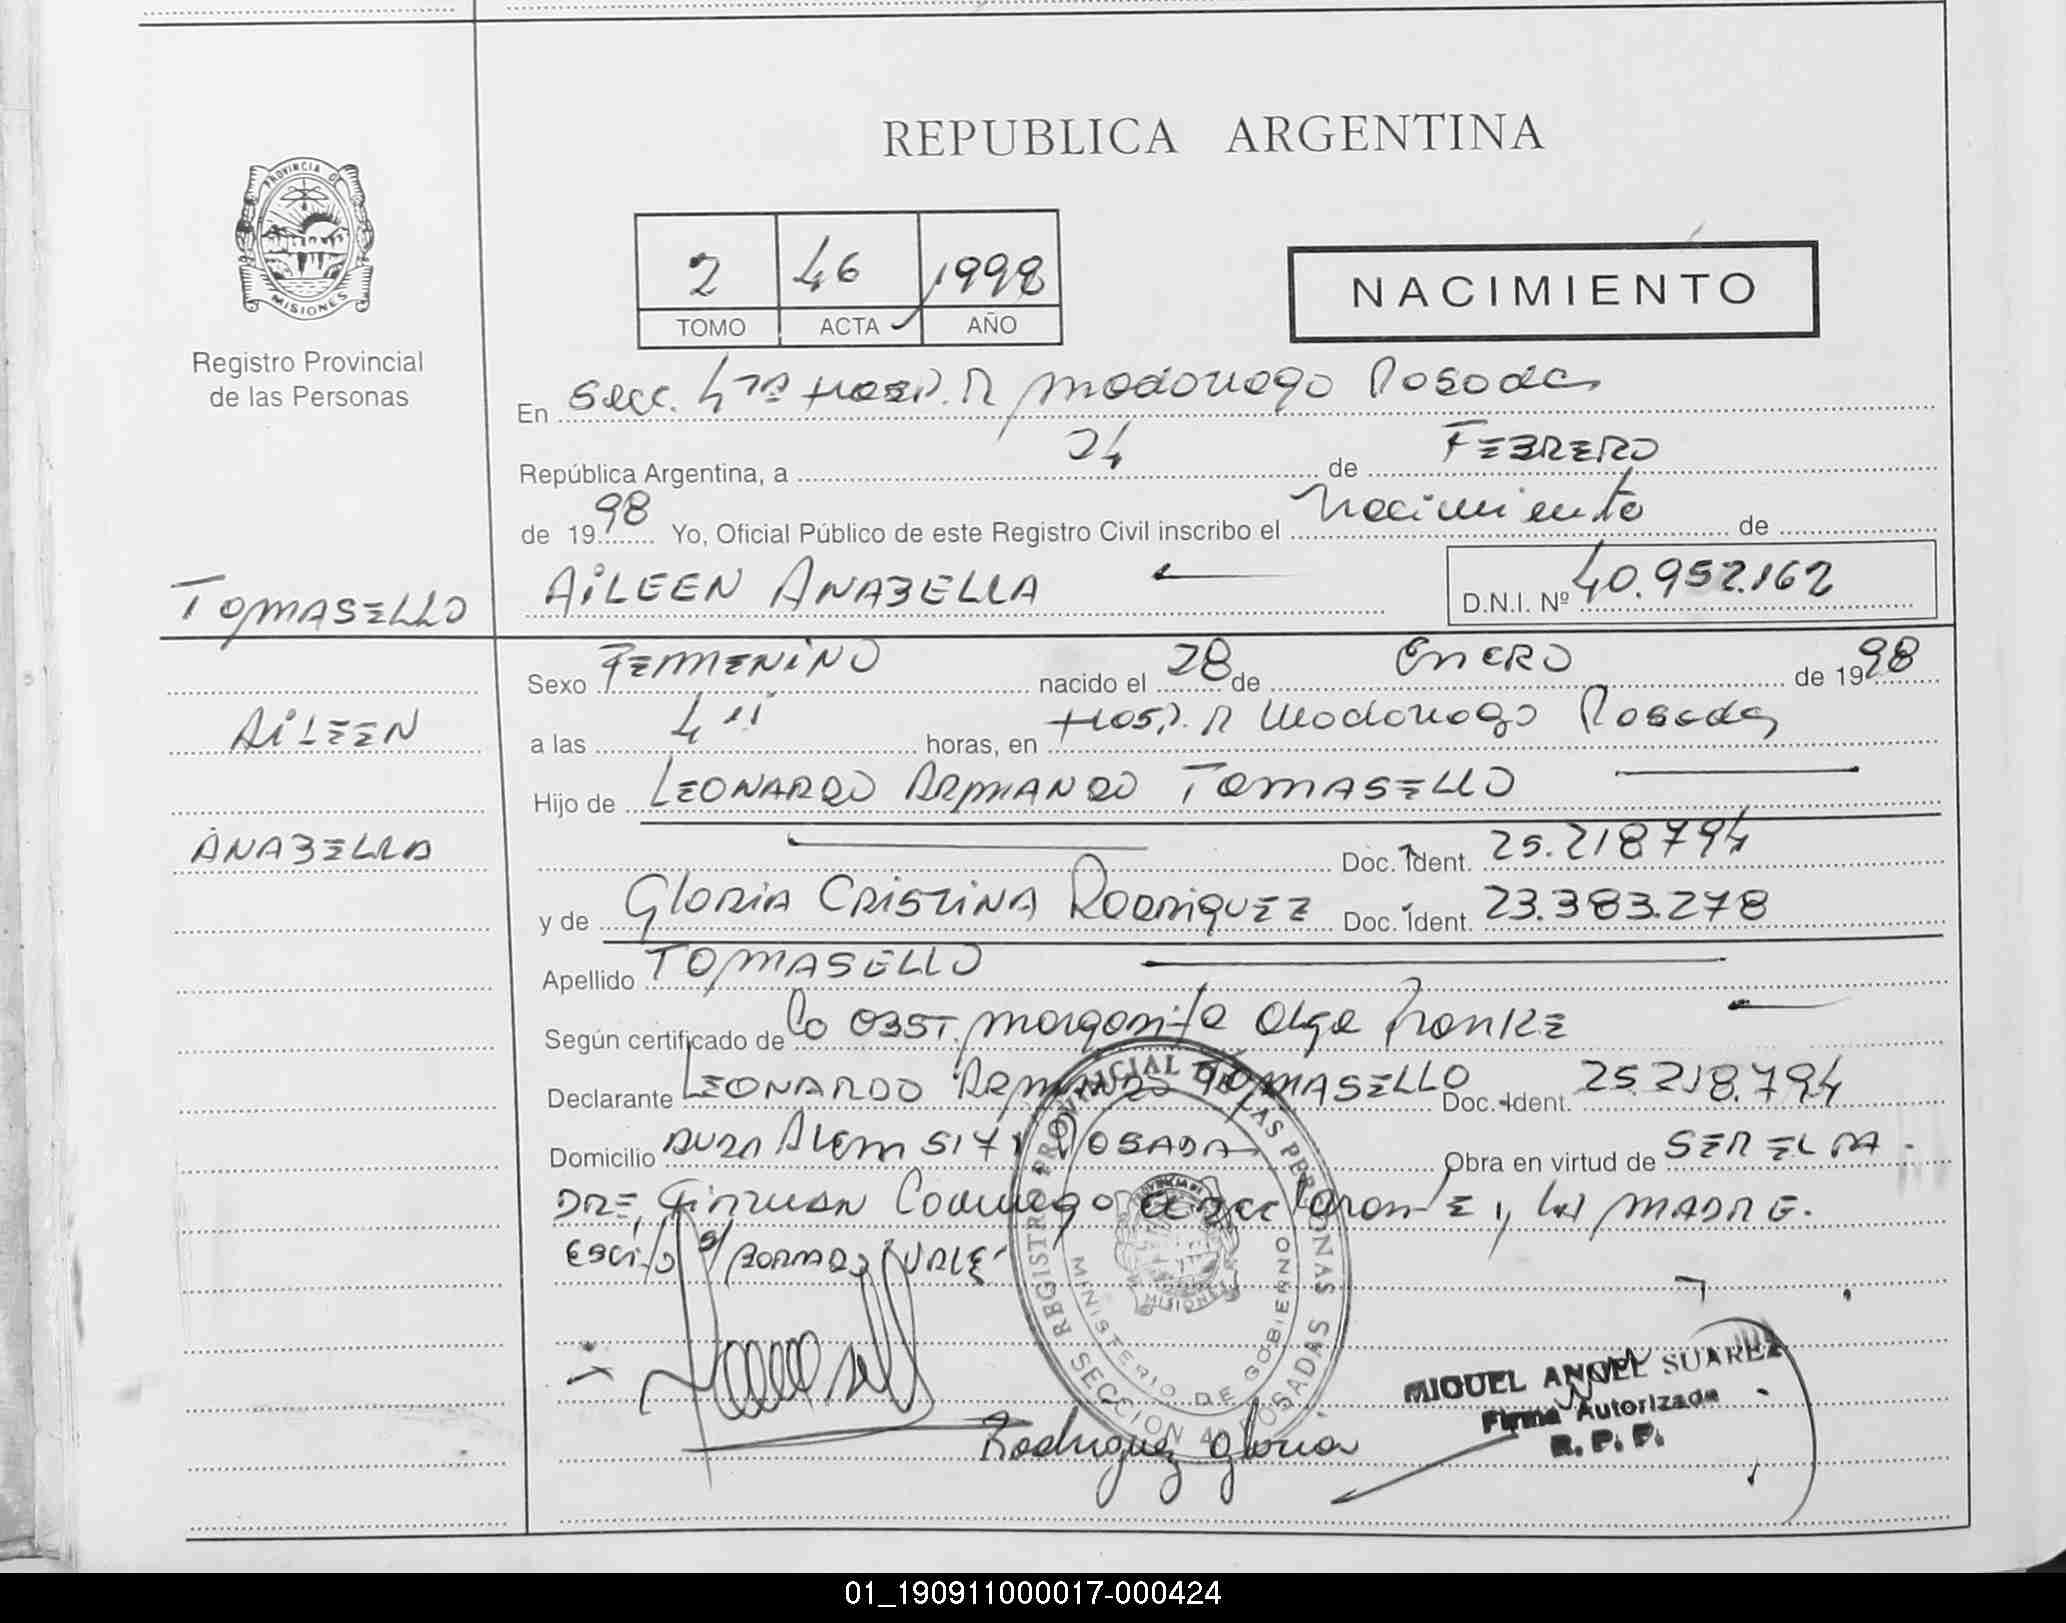 REPUBLICA ARGENTINA
PROVINCIA DE MISIONES
Registro Provincial
de las Personas
2 46 1998
TOMO ACTA AÑO
NACIMIENTO
En Secc. 4ta Hosp. R Madariaga Posadas
República Argentina, a 24 de FEBRERO
de 1998 Yo, Oficial Público de este Registro Civil inscribo el Nacimiento de
TOMASELLO
AiLEEN ANABELLA D.N.I. Nº 40.952.162
Sexo FEMENiNO nacido el 28 de ENERO de 1998
AiLEEN
a las 4 horas, en Hosp. R Madariaga Posadas
Hijo de LEONARDO ARMANDO TOMASELLO
ANABELLA
Doc. Ident. 25.218794
y de GLORIA CRiSTiNA RODRiGUEZ Doc. Ident. 23.383.278
Apellido TOMASELLO
Según certificado de La OBST. Margarita Olga Franke
Declarante LEONARDO ARMANDO TOMASELLO Doc. Ident. 25.218.794
Domicilio Alem POSADAS Obra en virtud de SER EL PA
DRE, Firman Conmigo el declarante y la MADRE.
Escito s/ BORRADO VALE
REGISTRO PROVINCIAL DE LAS PERSONAS
MINISTERIO DE GOBIERNO
MISIONES
SECCION 4 POSADAS
Rodriguez Gloria
MIGUEL ANGEL SUAREZ
Firma Autorizada
R. P. P.
01_190911000017-000424